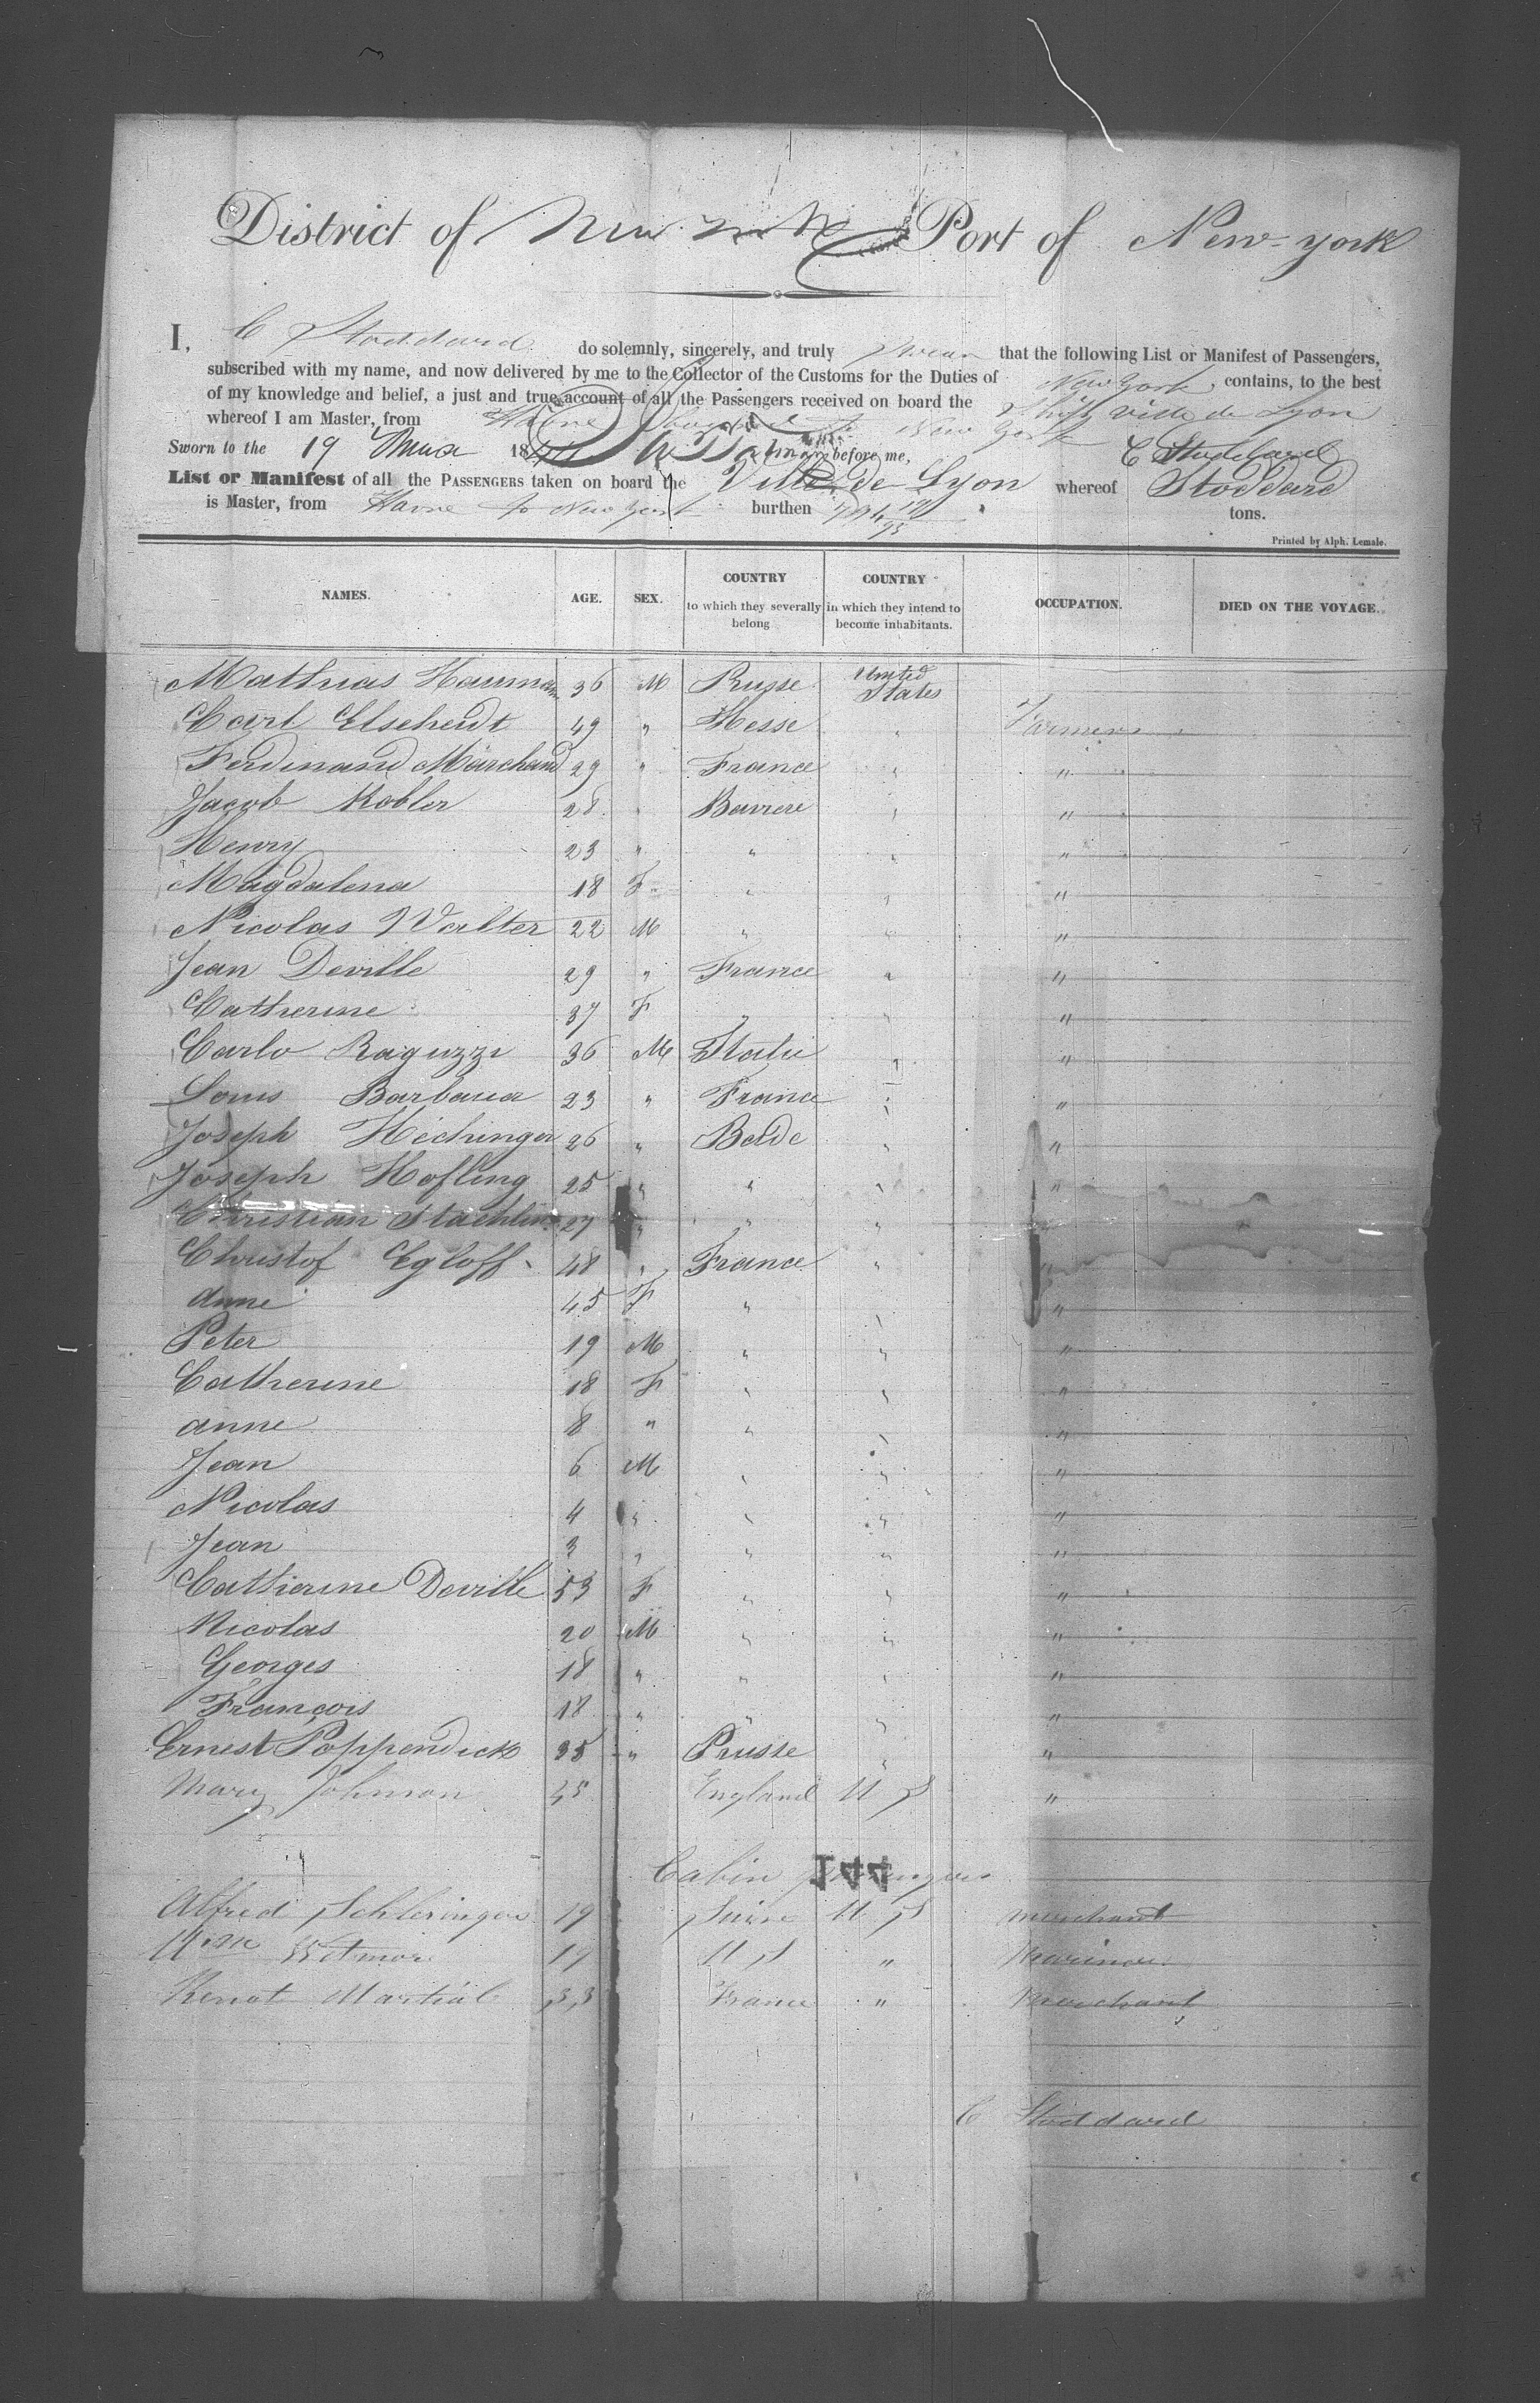 District of New York Port of New-york
I, C Stoddard do solemnly, sincerely, and truly swear that the following List or Manifest of Passengers,
subscribed with my name, and now delivered by me to the Collector of the Customs for the Duties of New York, contains, to the best
of my knowledge and belief, a just and true account of all the Passengers received on board the Ship Ville de Lyon
whereof I am Master, from Havre to New York
Sworn to the 19 18 before me, C Stoddard
List or Manifest of all the PASSENGERS taken on board the Ville de Lyon whereof Stoddard
is Master, from Havre to New York burthen tons.
Printed by Alph. Lemale.
NAMES. AGE. SEX. COUNTRY to which they severally belong COUNTRY in which they intend to become inhabitants. OCCUPATION. DIED ON THE VOYAGE.
Mathias Hausmann 36 M Prusse United States
Carl Elscheidt 49 " Hesse " Farmers
Ferdinand Marchand 29 " France " "
Jacob Kobler 28 " Baviere " "
Henry 23 " " " "
Magdalena 18 F " " "
Nicolas Walter 22 M " " "
Jean Deville 29 " France " "
Catherine 37 F " " "
Carlo Raguzzi 36 M Italie " "
Louis Barbaua 23 " France " "
Joseph Hechinger 26 " Bade " "
Joseph Hofling 25 " " " "
Christian Staehlin 27 " " " "
Christof Egloff 48 " France " "
Anne 45 F " " "
Peter 19 M " " "
Catherine 18 F " " "
anne 8 " " " "
Jean 6 M " " "
Nicolas 4 " " " "
Jean 3 " " " "
Catherine Deville 53 F " " "
Nicolas 20 M " " "
Georges 18 " " " "
François 18 " " " "
Ernest Poppendick 35 " Prusse " "
Mary Johnson 45 England U S "
Cabin passengers
Alfred Schleringer 19 Suisse U S merchant
19 U S " Mariner
Renot Martial 33 France " Merchant
C Stoddard